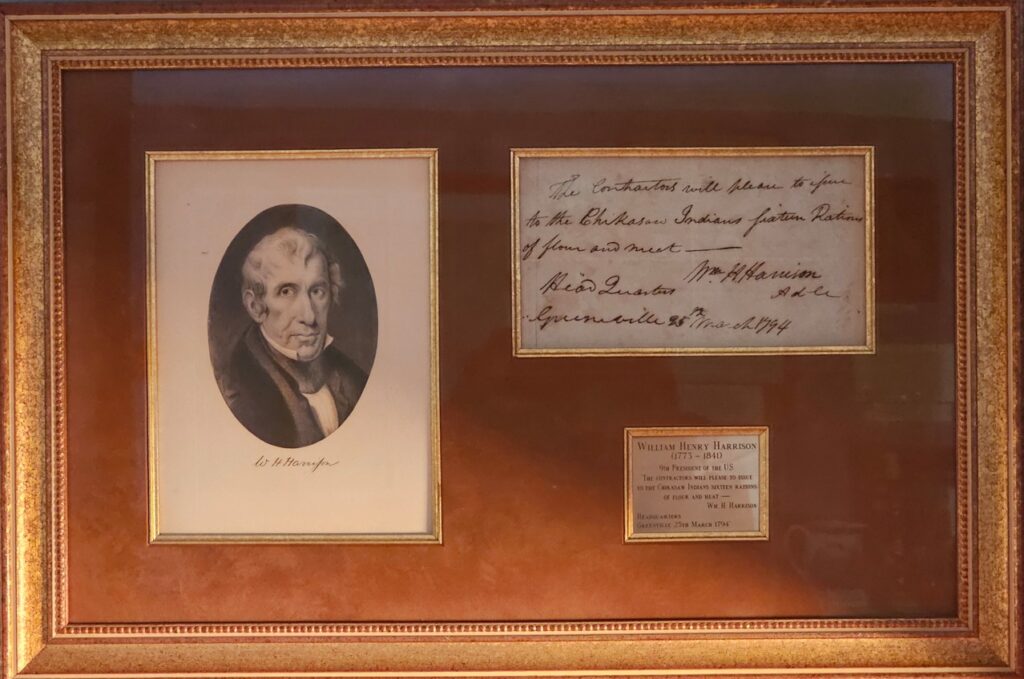 W H Harrison
The Contractors will please to issue
to the Chikasaw Indians sixteen Rations
of flour and meet —
Wm H Harrison
Head Quarters
A d C
Greeneville 25th March 1794
WILLIAM HENRY HARRISON
(1773 - 1841)
9TH PRESIDENT OF THE US
THE CONTRACTORS WILL PLEASE TO ISSUE
TO THE CHIKASAW INDIANS SIXTEEN RATIONS
OF FLOUR AND MEAT —
WM H HARRISON
HEADQUARTERS
GREENVILLE 25TH MARCH 1794